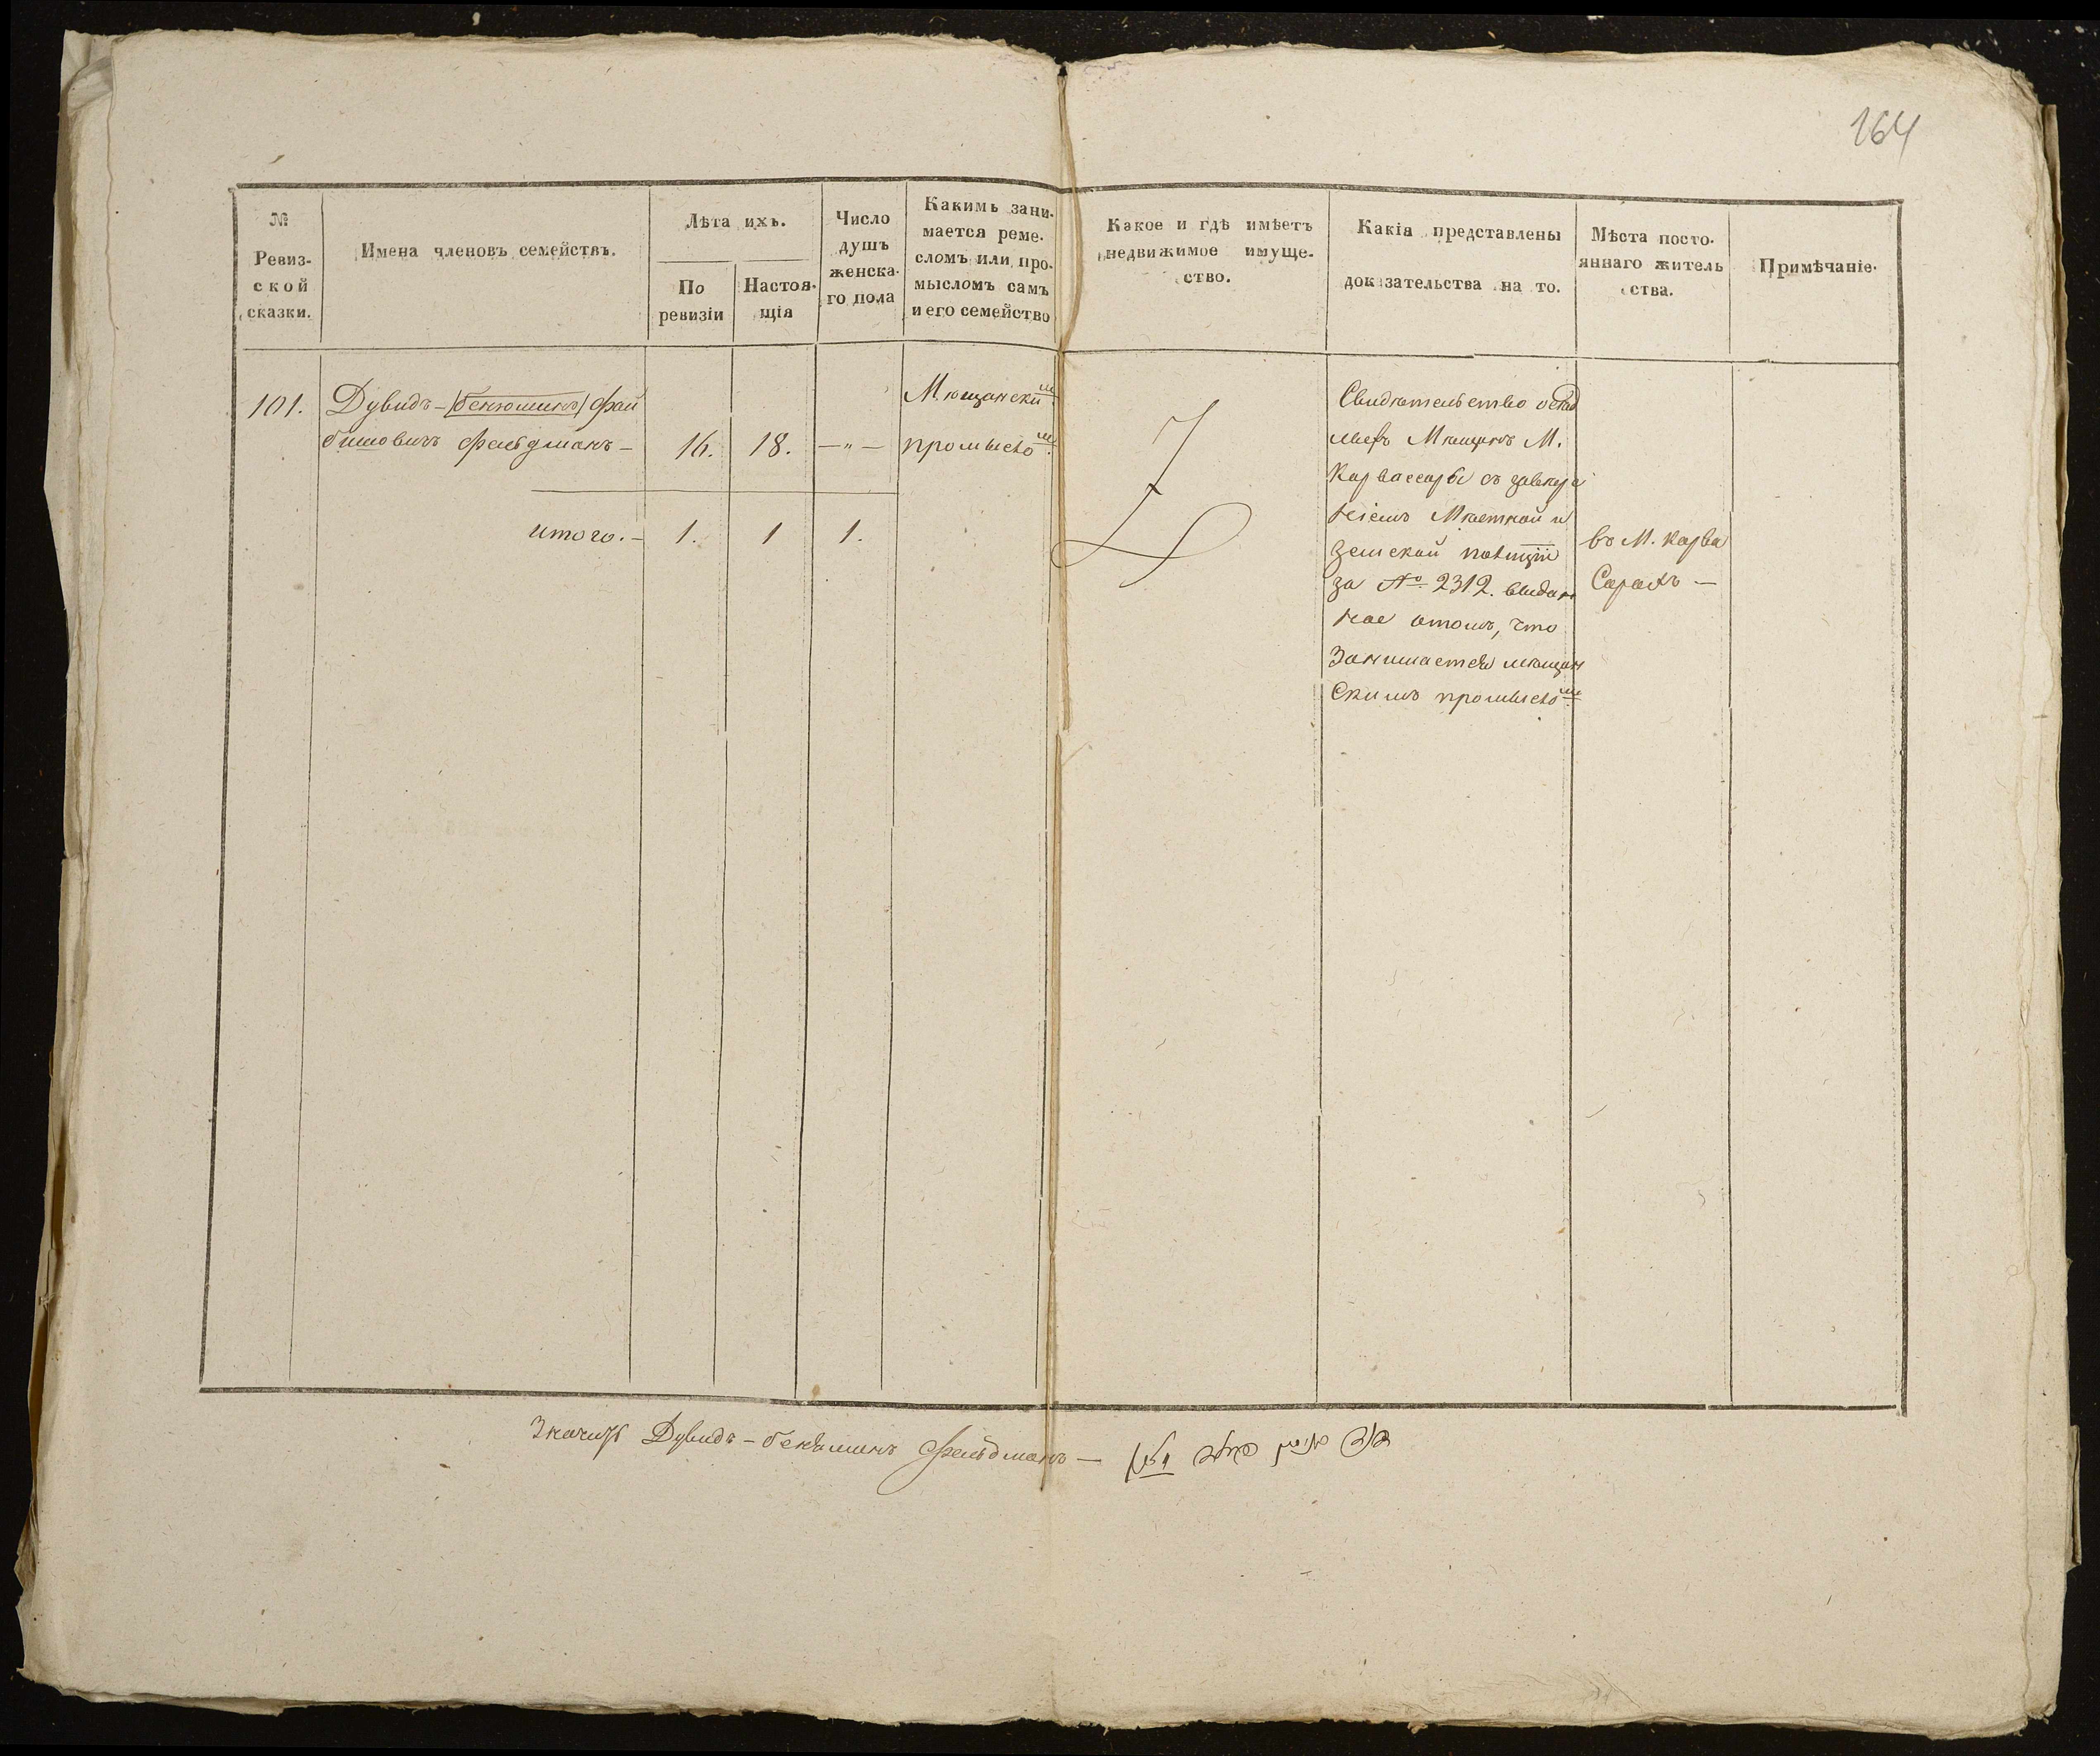 164
№
Ревиз-
ской
сказки.
Имена членовъ семействъ.
Лѣта ихъ.
По
ревизіи
Настоя-
щія
Число
душъ
женска-
го пола
Какимъ зани-
мается реме-
сломъ или про-
мысломъ самъ
и его семейство
Какое и гдѣ имѣетъ
недвижимое имуще-
ство.
Какія представлены
доказательства на то.
Мѣста посто-
яннаго житель
ства.
Примѣчаніе.
101.
Дувидъ-/бенюминъ/ Фай
бишовичъ Фельдманъ —
16.
18.
— " —
Мѣщански мъ
промысло мъ
итого. —
1.
1
1.
Свидѣтельство
Мѣщанъ М.
Карвассары съ завѣре
ніемъ Мѣстной и
земской полиціи
за № 2312. выдан
ное о томъ, что
Занимается мѣщан
Скимъ промысло мъ
въ М. Карва
Сарахъ —
Дувидъ-беньминъ Фельдманъ —